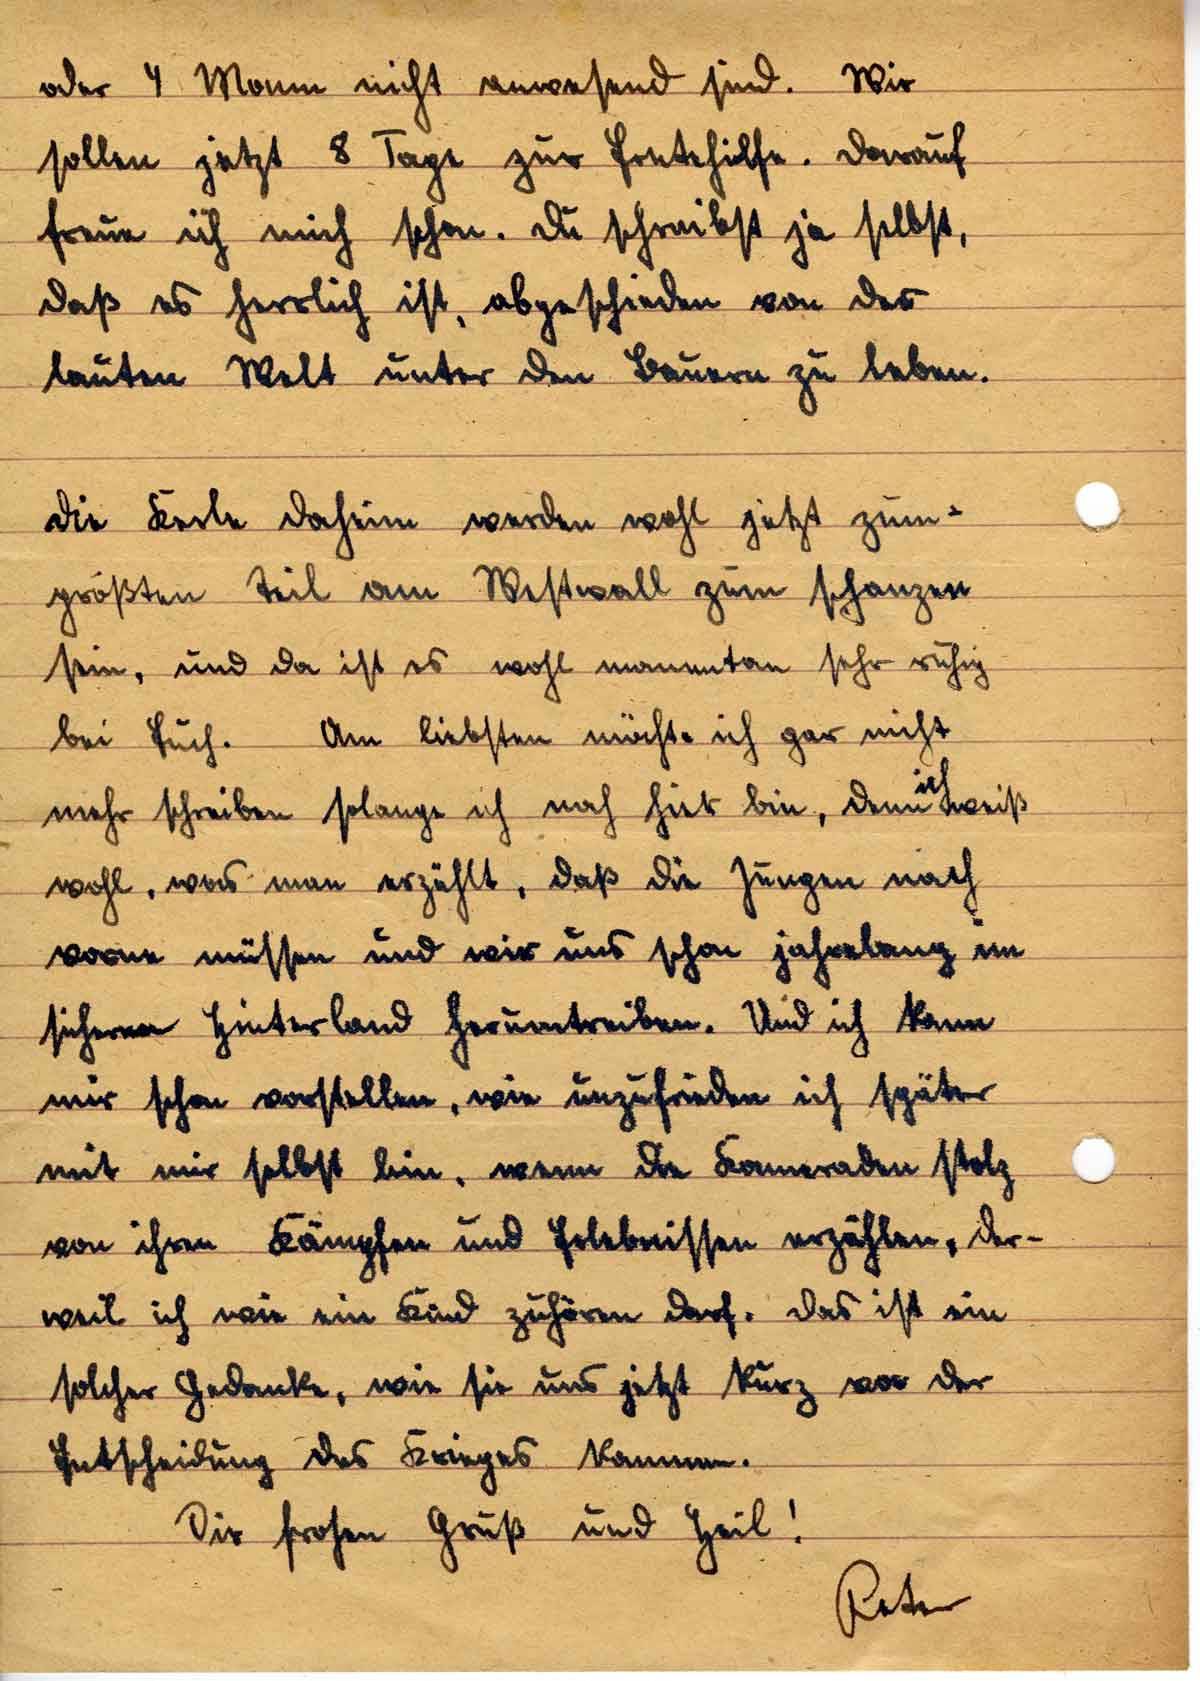 oder 4 Mann nicht anwesend sind. Wir
sollen jetzt 8 Tage zur Erntehilfe. Darauf
freue ich mich schon. Du schreibst ja selbst,
daß es herrlich ist, abgeschieden von der
lauten Welt unter den Bauern zu leben.
Die Kerle daheim werden wohl jetzt zum-
größten Teil am Westwall zum schanzen
sein, und da ist es wohl momentan sehr ruhig
bei Euch. Am liebsten möchte ich gar nicht
mehr schreiben solange ich noch hier bin, denn ich weiß
wohl, was man erzählt, daß die Jungen nach
vorne müssen und wir uns schon jahrelang im
sicheren Hinterland herumtreiben. Und ich kann
mir schon vorstellen, wie unzufrieden ich später
mit mir selbst bin, wenn die Kameraden stolz
von ihren Kämpfen und Erlebnissen erzählen, der-
weil ich wie ein Kind zuhören darf. Das ist ein
solcher Gedanke, wie sie uns jetzt kurz vor der
Entscheidung des Krieges kommen.
Dir frohen Gruß und Heil!
Peter